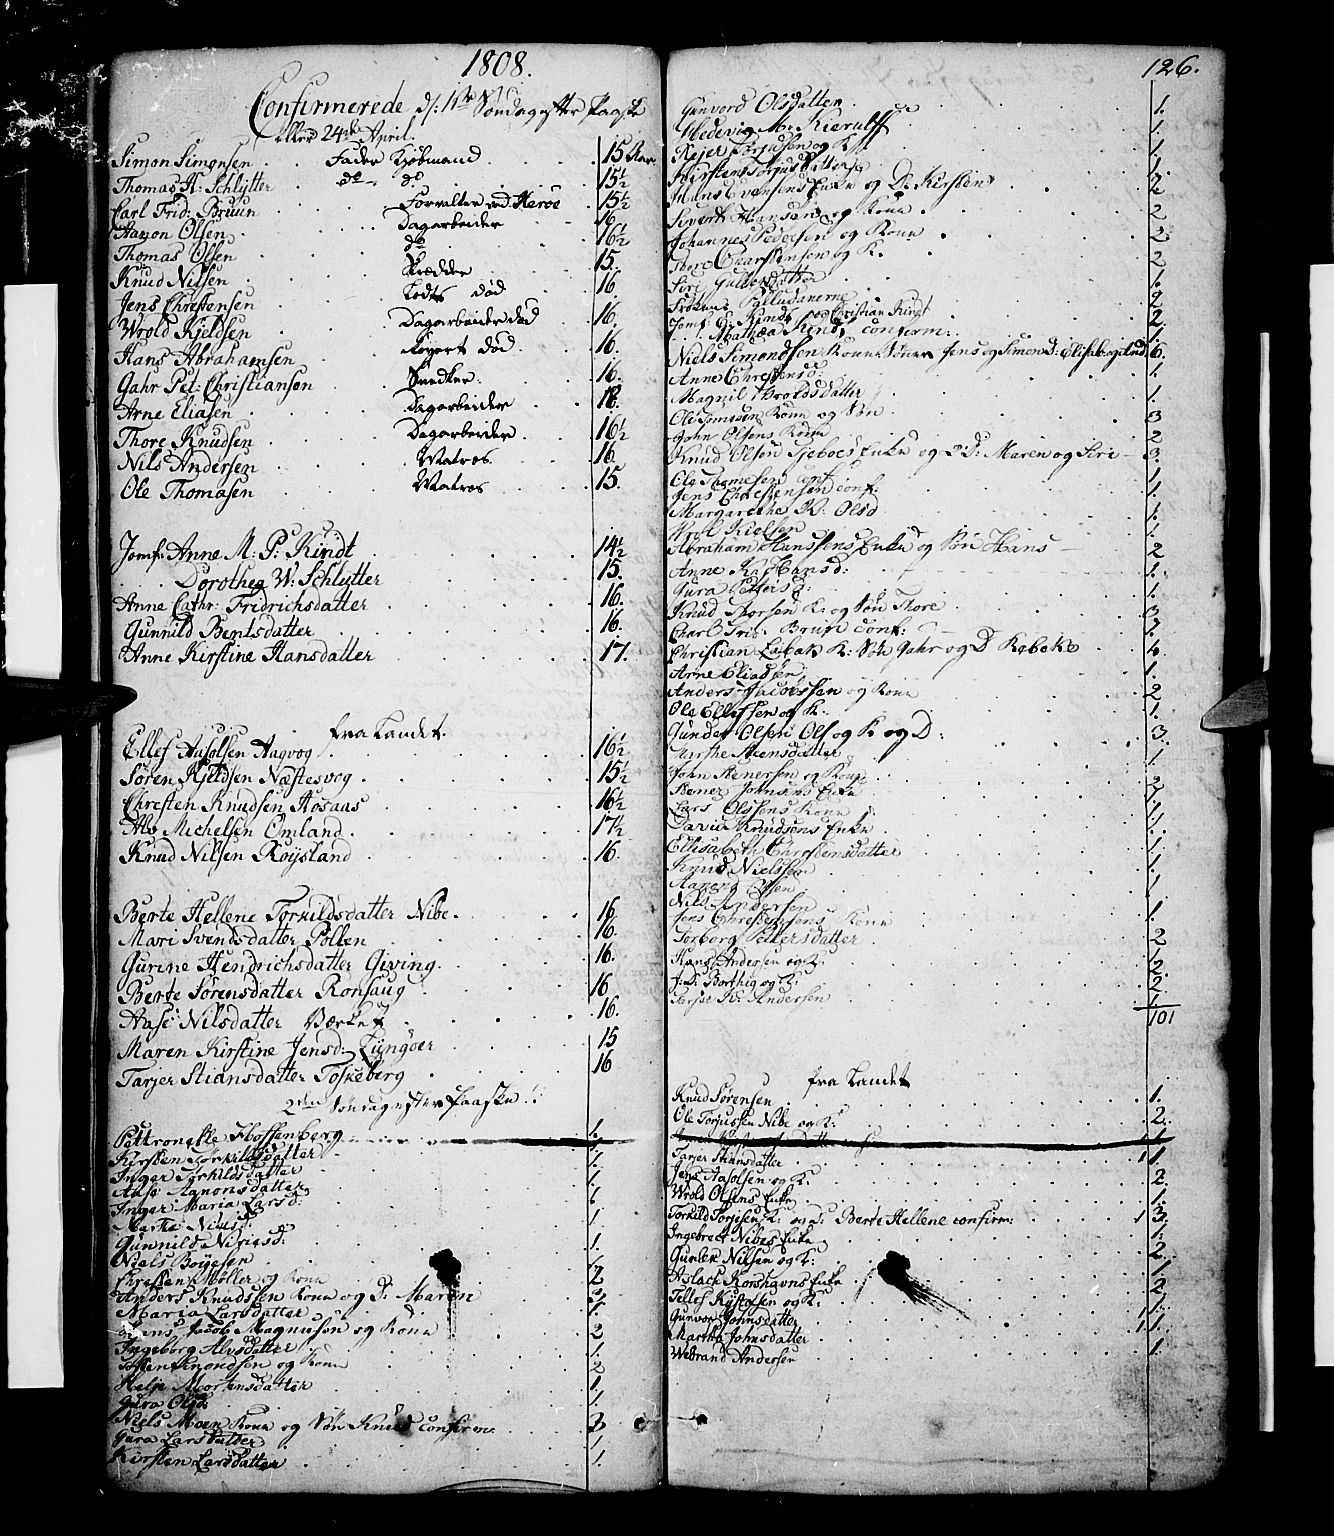 1808.
Confirmerede d: 1ste Søndag efter Paaske
eller 24de April.
Simon Simonsen Fader Kjøbmand 15 Aar
Thomas H. Schlytter do do 15½
Carl Frid: Bruun Forvalter ved Næroe 15½
Hagon Olsen Dagarbeider 16
Thomas Olsen do 16½
Knud Nilsen Skrædder 15.
Jens Chrestensen Lodts død 16
Wrold Kjeldsen Dagarbeider død 16.
Hans Abrahamsen død 16.
Gahr Pet: Christiansen Snedker 16.
Arne Eliasen Dagarbeider 18.
Thore Knudsen Dagarbeider 16½
Nils Andersen Matros 16.
Ole Thomasen Matros 15.
Jomf: Anne M. P. Kindt 14½
Dorothea W: Schlytter 15.
Anne Cathr: Fridrichsdatter 16.
Gunnild Bentsdatter 16.
Anne Kirstine Hansdatter 17.
fra Landet.
Ellef Aasolsen Aagvog 16½
Søren Kjeldsen Næstesvog 15½
Chresten Knudsen Aosaas 16½
Alv Michelsen Omland 17½
Knud Nilsen Røysland 16.
Berte Hellene Torkildsdatter Nibe. 16
Mari Svendsdatter Pollen 16.
Gurine Hendrichsdatter Giving. 16.
Berte Sørensdatter Ronsaug 16
Aase Nilsdatter 16.
Maren Kirstine Jensd: Lyngøer 15
Tarjer Stiansdatter Toskeberg 16
2den Søndag efter Paaske
Pettronelle Flossenberg 1.
Kirsten Torkildsdatter 1.
Inger Torkildsdatter 1.
Aase Aanonsdatter 1.
Inger Maria Larsd: 1
Marte Nielsd: 1
Gunnild Nirisd: 1.
Niels Boyesen
Chresten Møller og Kone 2
Anders Knudssen Kone og D. Maren 3
Maria Larsdatter 1.
Jens Jacob Magnusen og Kone 2
Ingeborg Alvsdatter 1.
og Kone 2
Helje Mortensdatter 1
Gura Olsd: 1.
Niels Moen Kone og Søn Knud confirm. 3
Gura Larsdatter 1
Kirsten Larsdatter 1.
126.
Gunvord Olsdatten 1.
Hedevig M. Kierulff 1
Rejer Torjusen og K 1
Kirsten Torjusdatter 1
Hans Evensens Enke og D. Kirsten 2
Sivert Hansen og Kone 2
Johannes Pedersen og Kone 2
Tore Charstensen og K. 2
Siri Gulbrsdatter 1
Frøkene Palludanerne 2
Jomf: G. Kindt og Christian Kindt 2
Mathæa Kindt confirm: 1
Niels Simondsen Kone Sønner Jens og Simon D: Elisab og Gund: 6.
Anne Chrestensd: 1
Magnil Wroldsdatter 1
Ole Tomesen Kone og Søn 3
John Olsens Kone 2
Knud Olsen Gjeboes Enke og 2 D: Maren og Siri 3
Ole Tomesen conf 1
Jens Chrestensen conf: 1.
Margarethe K. Olsd 1
Kield Kielsen 1
Abraham Hanssens Enke og Søn Hans 2
Anne K. Hansd: 1
Gura Pettersd: 1
Knud Thorsen K. og Søn Thore 3
Charl Frid: Brun conf:
Christian K. Søn Gahr og D Rebeke 4
Arne Eliassen 1
Anders Jacobssen og Kone 2
Ole Ellefsen og K. 1.
Gunder Olsen Ols og K og D: 3
datter 1
John Stenersen og Kone 2
Stener Johnsens Enke 1
Lars Olssens Kone 1
David Knudsens Enke 1
Ellisabeth Chrestensdatter 1
Knud Nielssen 1
Aanon Olsen 1
Nils Andersen
Jens Chrestensens Kone 1
Torborg Pettersdatter
Hans Andersen og K. 2
J. D. Borthig og K: 2
K. Andersen 1
101
fra Landet
Knud Sørensen 1.
Ole Torjussen Nibe og K. 2
Tarjer Stiansdatter 1
Jens Aasolsen og K. 2
Wrold Olsens Enke 1
Torkild Torjesen K: og D: Berte Hellene confirm: 3
Ingebret Nibes Enke 1
Gunder Nilsen og K: 2
Aslack Korshavns Enke 1
Tellef Kistolsen og K: 2
Gunvor Johnsdatter 1
Martha Johnsdatter 1
Webrand Andersen 1